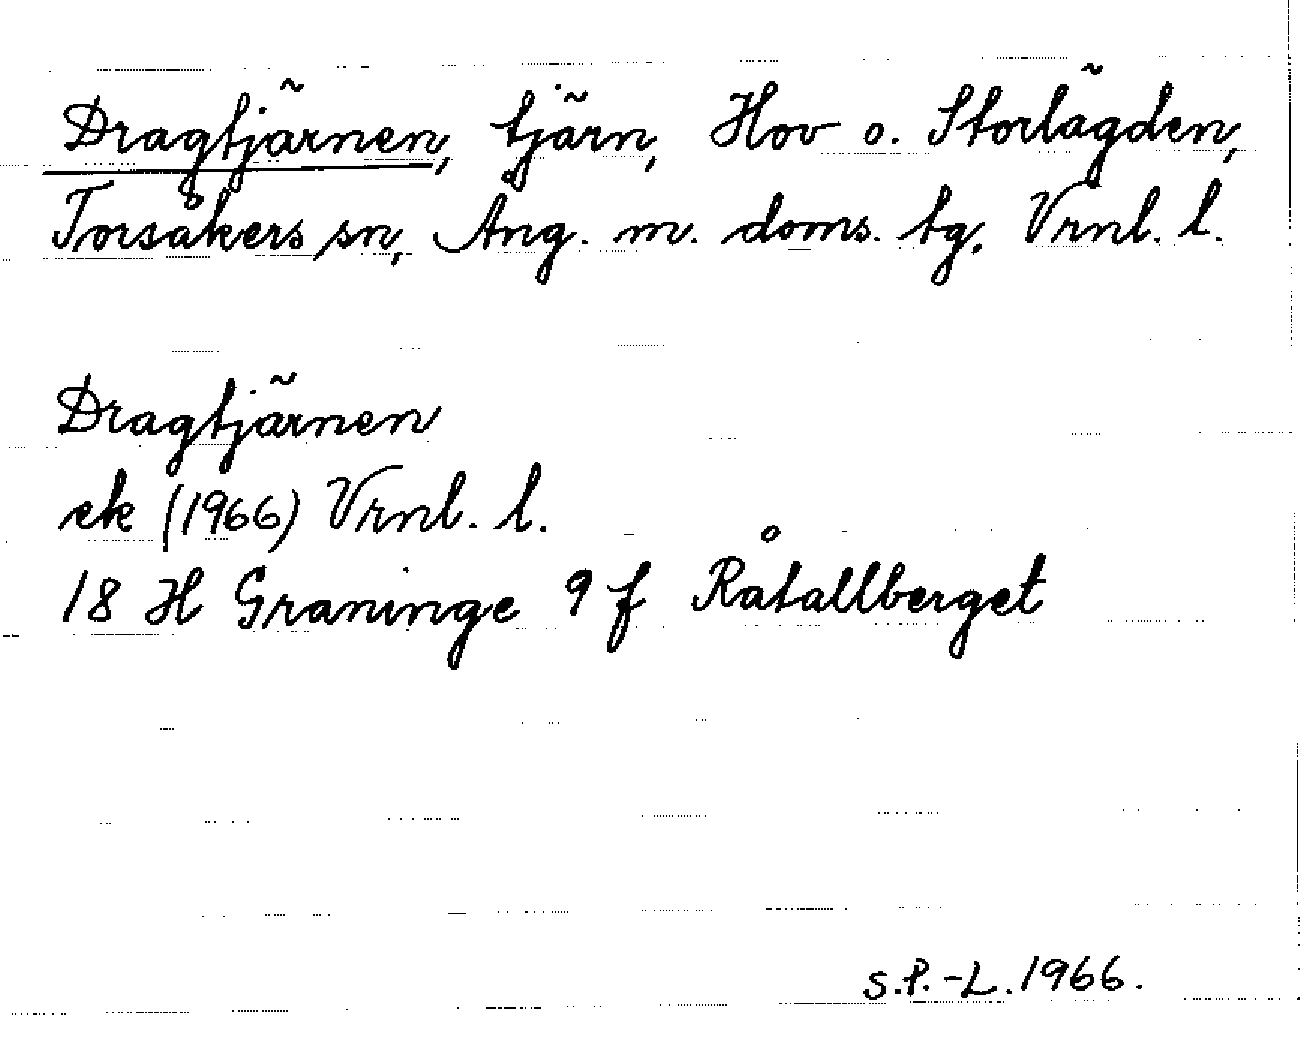 Dragtjärnen, tjärn, Hov o. Storlägden,
Torsåkers sn, Ång. m. doms. tg. Vrnl. l.
Dragtjärnen
ek (1966) Vrnl. l.
18 H Graninge 9 f Råtallberget
S.P.-L. 1966.